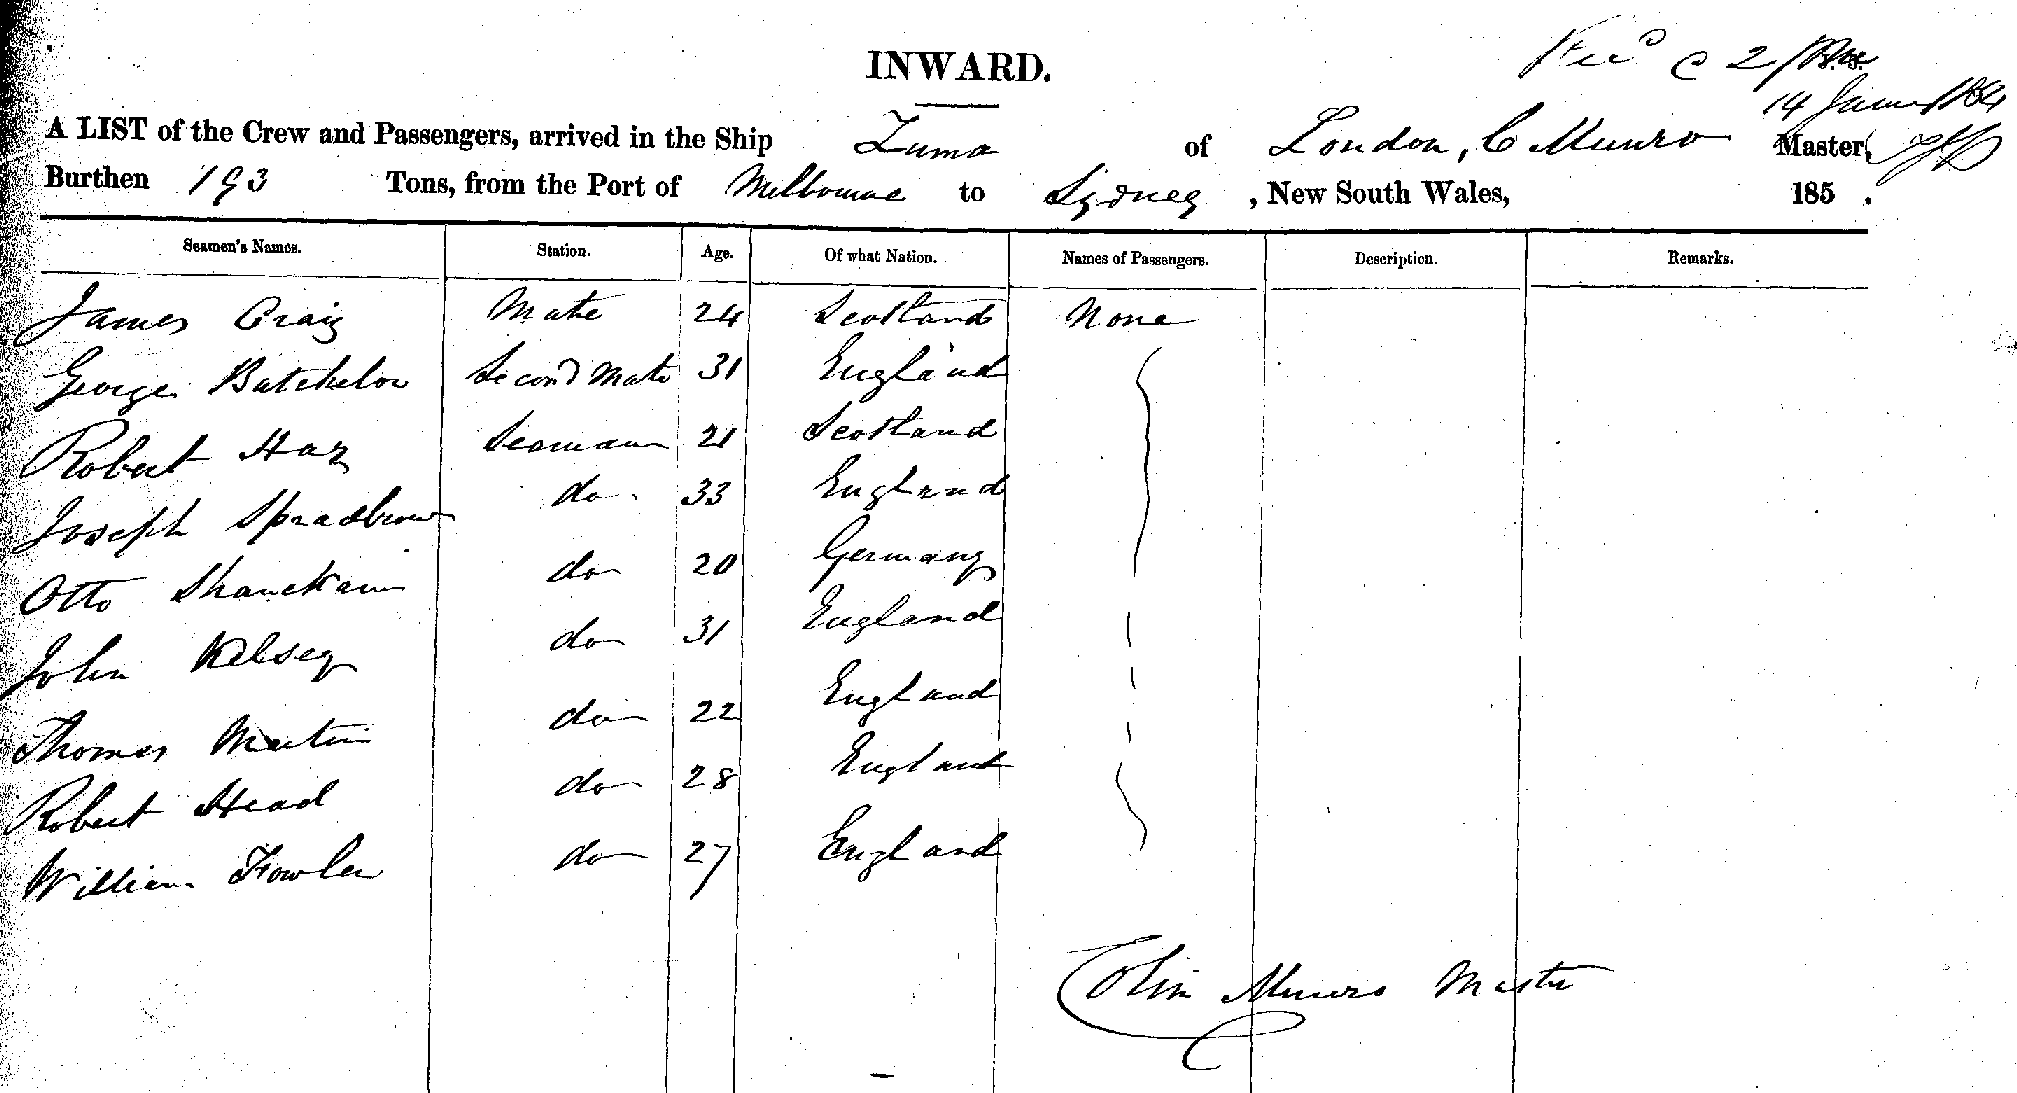 INWARD.
Rec'd @ 2
14 Jany 1854
A LIST of the Crew and Passengers, arrived in the Ship Zuma of London, C Munro Master,
Burthen 193 Tons, from the Port of Melbourne to Sydney, New South Wales, 185 .
Seamen's Names. Station. Age. Of what Nation. Names of Passengers. Description. Remarks.
James Craig Mate 24 Scotland None
George Batchelor Second Mate 31 England
Robert Hay Seaman 21 Scotland
Joseph Spradbrow do 33 England
Otto do 20 Germany
John Kelsey do 31 England
Thomas Martin do 22 England
Robert Head do 28 England
William Fowler do 27 England
Colin Munro Master